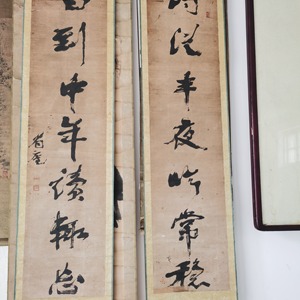 從半夜吟常穩
到中年讀輒忘